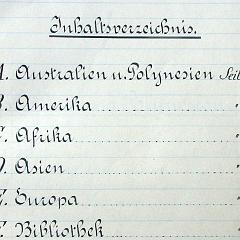 Inhaltsverzeichnis.
A. Australien u. Polynesien Seit
B. Amerika "
C. Afrika "
D. Asien "
E. Europa "
F. Bibliothek "